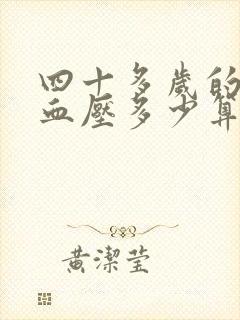 四十多歲的
血壓多少算
黃潔莹